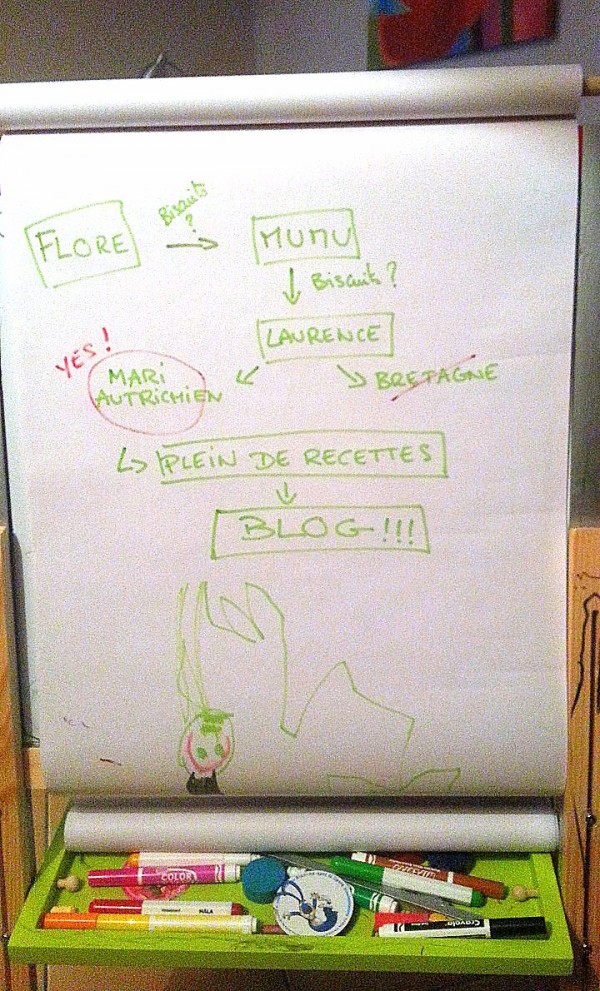 Biscuits
?
FLORE
MUMU
Biscuits ?
LAURENCE
YES !
MARI
AUTRICHIEN
BRETAGNE
PLEIN DE RECETTES
BLOG !!!
COLOR
MÅLA
Crayola